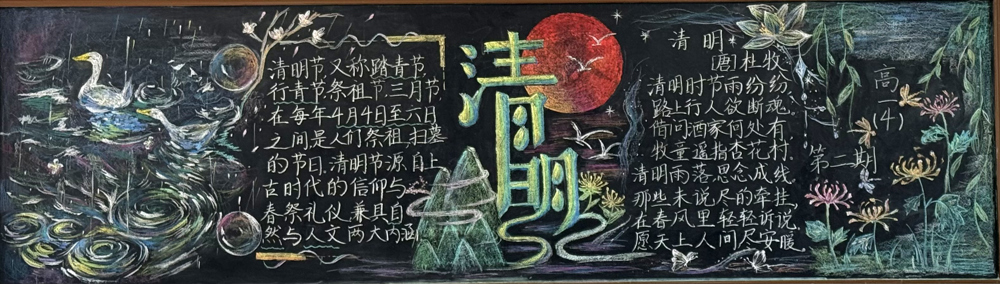 清明节又称踏青节
行青节.祭祖节.三月节
在每年4月4日至六日
之间是人们祭祖.扫墓
的节日.清明节源自上
古时代的信仰与
春祭礼仪.兼具自
然与人文两大内涵
清明
清明
[唐]杜牧
清明时节雨纷纷
路上行人欲断魂
借问酒家何处有
牧童遥指杏花村
清明雨落思念成线
那些未说尽的牵挂
在春风里轻轻诉说
愿天上人间尽安暖
高一(4)
第二期